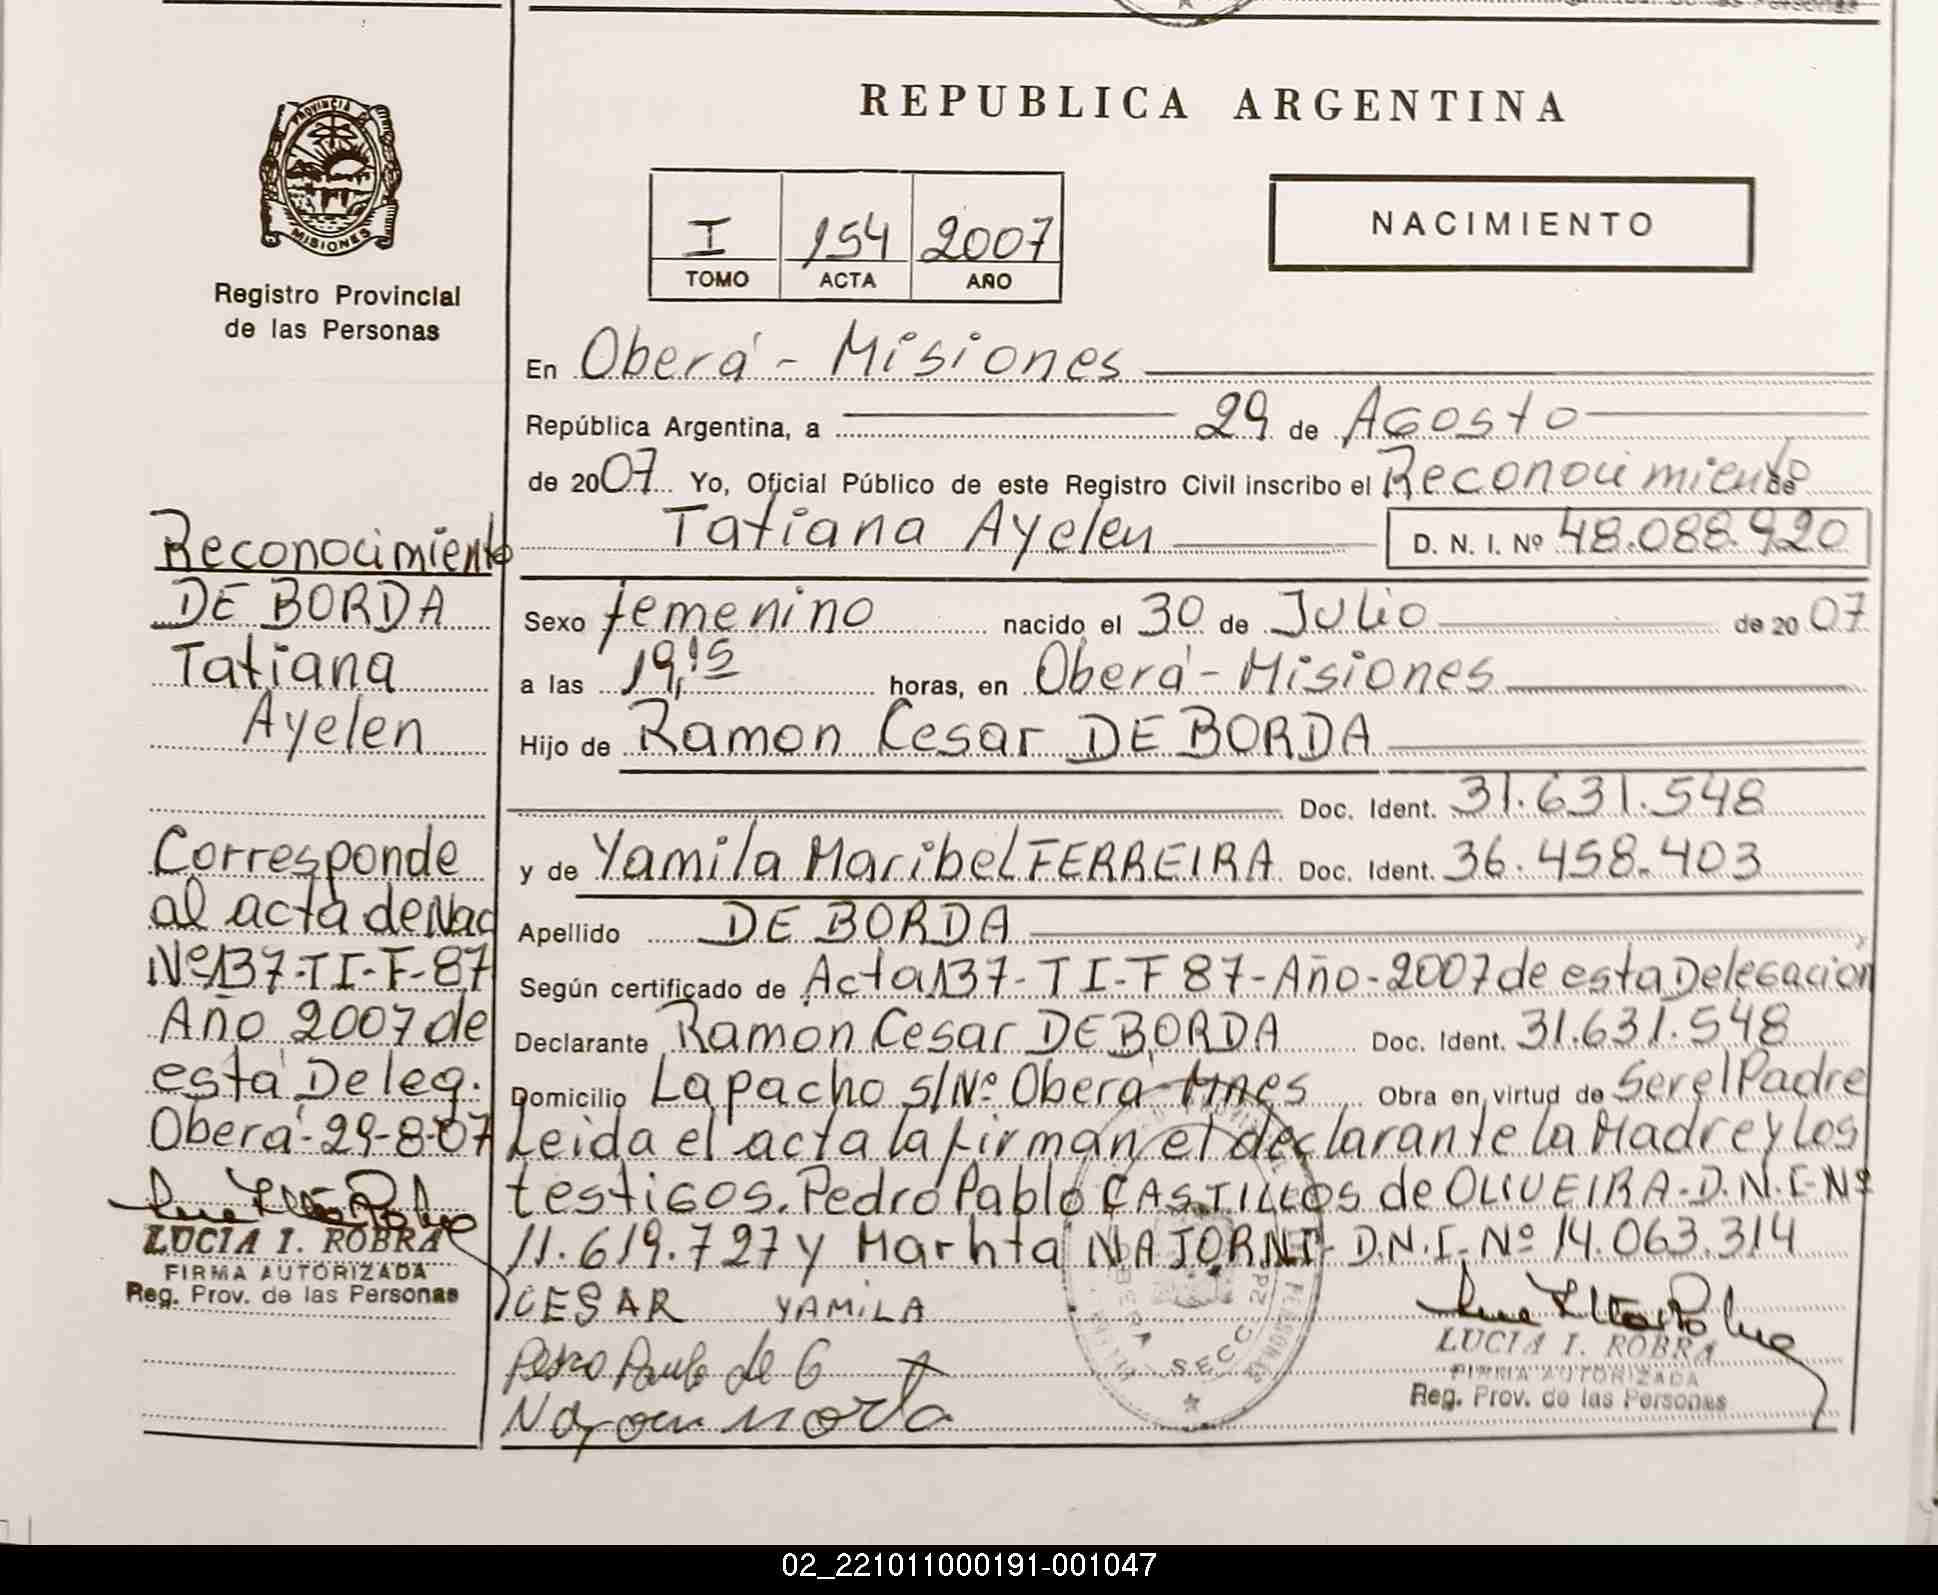 PROVINCIA
MISIONES
Registro Provincial
de las Personas
Reconocimiento
DE BORDA
Tatiana
Ayelen
Corresponde
al acta de Nac
Nº 137-TI-F-87
Año 2007 de
esta Deleg.
Oberá-29-8-07
LUCIA I. ROBRA
FIRMA AUTORIZADA
Reg. Prov. de las Personas
REPUBLICA ARGENTINA
I 154 2007
TOMO ACTA AÑO
NACIMIENTO
En Oberá - Misiones
República Argentina, a 29 de Agosto
de 2007 Yo, Oficial Público de este Registro Civil inscribo el Reconocimiento de
Tatiana Ayelen D. N. I. Nº 48.088.920
Sexo femenino nacido el 30 de Julio de 2007
a las 19,15 horas, en Oberá - Misiones
Hijo de Ramon Cesar DE BORDA
Doc. Ident. 31.631.548
y de Yamila Maribel FERREIRA Doc. Ident. 36.458.403
Apellido DE BORDA
Según certificado de Acta 137-TI-F 87-Año-2007 de esta Delegacion
Declarante Ramon Cesar DE BORDA Doc. Ident. 31.631.548
Domicilio Lapacho s/Nº Obera-Mnes Obra en virtud de Ser el Padre
Leida el acta la firman el declarante la Madre y los
testigos. Pedro Pablo CASTILLOS de OLIVEIRA-D.N.I-Nº
11.619.727 y Marhta NAJORNI-D.N.I-Nº 14.063.314
CESAR YAMILA
SECC. 2ª
LUCIA I. ROBRA
FIRMA AUTORIZADA
Reg. Prov. de las Personas
02_221011000191-001047